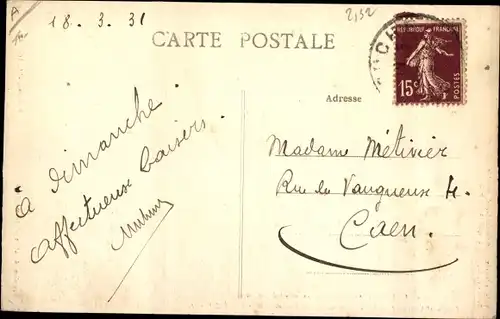 18.3.31
2152
CARTE POSTALE
RÉPUBLIQUE FRANÇAISE
15c
POSTES
Adresse
à Dimanche
affectueux baisers.
Madame Métivier
Rue de Vaugueux 4.
Caen.